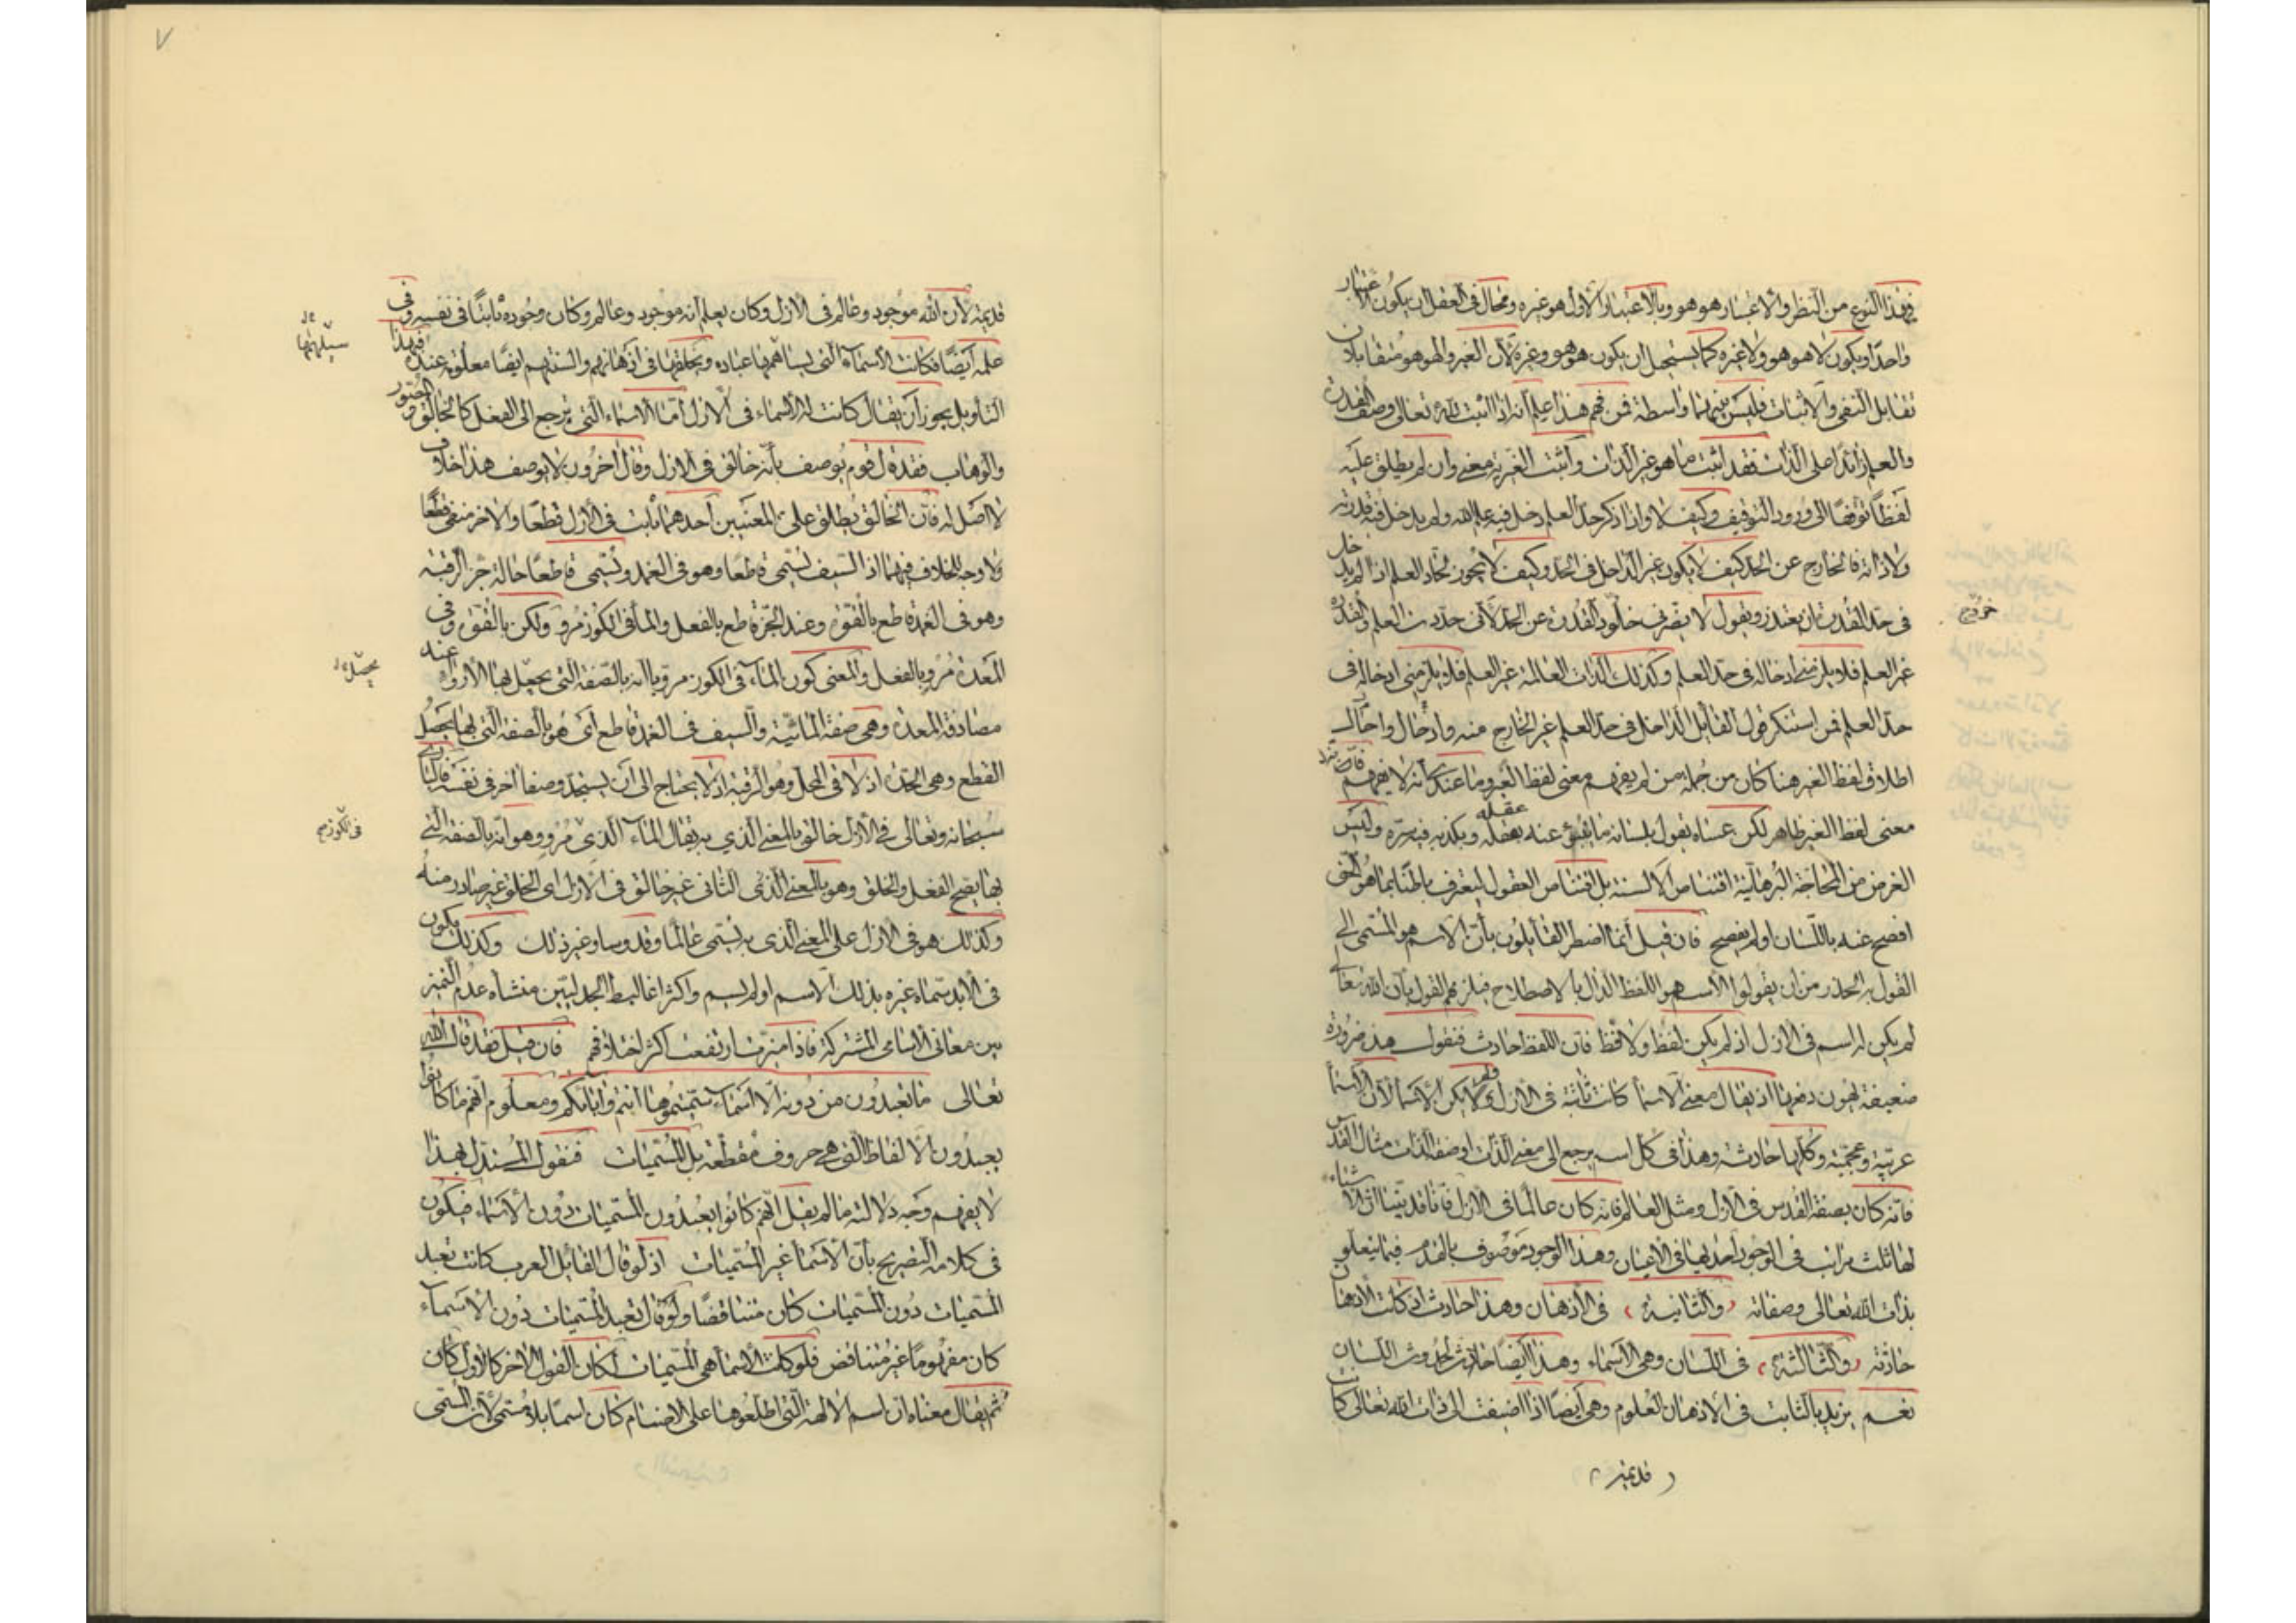 فبهذا النوع من النظر والاعتبار هو هو وبالاعتبار الاول هو غيره ومحال فى العقل ان يكون الاعتبار
واحدا ويكون لا هو هو ولا غيره كما يستحيل ان يكون هو هو وغيره لأن الغير والهو هو متقابلان
تقابل النفى والاثبات فليس بينهما واسطة فمن فهم هذا علم انه اذا اثبت لله تعالى وصف القدرة
والعلم زائدا على الذات فقد اثبت ما هو غير الذات وأثبت الغيرية معنى وان لم يطلق عليه
لفظا توقفا الى ورود التوقيف وكيف لا واذا ذكر حد العلم دخل فيه علم الله ولم يدخل فيه قدرته
ولا ذاته فالخارج عن الحد كيف لا يكون غير الداخل فى الحد وكيف لا يجوز لحاد العلم اذا لم يدخل
فى حد القدرة ان يعتذر ويقول لا يضرنى خروج القدرة عن الحد لأنى حددت العلم والقدرة
خروج
غير العلم فلا يلزمنى ادخاله فى حد العلم وكذلك الذات العالمة غير العلم فلا يلزمنى ادخاله فى
حد العلم فمن استنكر قول القائل الداخل فى حد العلم غير الخارج منه واحال
اطلاق لفظ الغير هنا كان من جملة من لم يفهم معنى لفظ الغير وما عندى انه لا يفهم
معنى لفظ الغير ظاهر لكن عساه يقول بلسانه ما ينبو عنه عقله ويكذبه فيه سره وليس
الغرض من المحاجة البرهانية اقتناص الالسنة بل اقتناص العقول ليعترف باطنا بما هو الحق
افصح عنه باللسان او لم يفصح فان قيل انما اضطر القائلون بأن الاسم هو المسمى الى
القول به الحذر من ان يقولوا الاسم هو اللفظ الدال بالاصطلاح فيلزمهم القول بأن الله تعالى
لم يكن له اسم فى الازل اذ لم يكن لفظ ولا لافظ فان اللفظ حادث فنقول هذه ضرورة
ضعيفة يهون دفعها اذ يقال معنى الاسماء كانت ثابتة فى الازل ولم يكن الاسماء لأن الاسماء
عربية وعجمية وكلها حادثة وهذا فى كل اسم يرجع الى معنى الذات او صفة الذات مثل القدس
فانه كان بصفة القدس فى الازل ومثل العالم فانه كان عالما فى الازل فانا قد بينا ان الاشياء
لها ثلث مراتب فى الوجود احديها فى الاعيان وهذا الوجود موصوف بالقدم فيما يتعلق
بذات الله تعالى وصفاته (والثانية) فى الأذهان وهذا حادث اذ كانت الأذهان
حادثة (والثالثة) فى اللسان وهى الاسماء وهذا ايضا حادث لحدوث اللسان
نعم يزيد بالثابت فى الأذهان العلوم وهى أيضا اذا اضيفت الى ذات الله تعالى كانت
(قديمة)
٧
قديمة لأن الله موجود وعالم فى الازل وكان يعلم أنه موجود وعالم وكان وجوده ثابتا فى نفسه وفى
علمه أيضا فكانت الأسماء التى سيلهمها عباده ويخلقها فى اذهانهم والسنتهم ايضا معلومة عنده فبهذا
سيلهمها
التأويل يجوز أن يقال كانت له الأسماء فى الازل أما الاسماء التى ترجع الى الفعل كالخالق والمصور
والوهاب فقد قال قوم يوصف بأنه خالق فى الازل وقال اخرون لا يوصف هذا خلاف
لا اصل له فان الخالق يطلق على المعنيين احدهما ثابت فى الأزل قطعا والاخر منفى قطعا
ولا وجه للخلاف فيهما اذ السيف يسمى قاطعا وهو فى الغمد ويسمى قاطعا حالة حز الرقبة
وهو فى الغمد قاطع بالقوة وعند الحز قاطع بالفعل والماء فى الكوز مرو ولكن بالقوة وفى
المعدة مرو بالفعل والمعنى كون الماء فى الكوز مرويا انه بالصفة التى يحصل بها الارواء عند
يحصل
مصادفة المعدة وهى صفة المائية والسيف فى الغمد قاطع اى هو بالصفة التى بها يحصل
القطع وهى الحدة اذ لا فى المحل وهو الرقبة اذ لا يحتاج الى أن يستجد وصفا اخر فى نفسه فالبارى
سبحانه وتعالى فى الأزل خالق بالمعنى الذي به يقال الماء الذى مرو وهو انه بالصفة التى
فى الكوز
بها يصح الفعل والخلق وهو بالمعنى الذى الثانى غير خالق فى الازل اى الخلق غير صادر منه
وكذلك هو فى الازل على المعنى الذى به يسمى عالما وقدوسا وغير ذلك وكذلك يكون
فى الأبد سماه غيره بذلك الاسم او لم يسم واكثر اغاليط الجدليين منشأه عدم التمييز
بين معانى الأسامى المشتركة فاذا ميزت ارتفعت اكثر اختلافهم فان قيل فقد قال الله
تعالى ما تعبدون من دونه الا اسماء سميتموها انتم واباؤكم ومعلوم انهم ما كانوا
يعبدون الالفاظ التى هى حروف مقطعة بل المسميات فنقول المستدل بهذا
لا يفهم وجه دلالته ما لم يقل انهم كانوا يعبدون المسميات دون الأسماء فيكون
فى كلامه التصريح بأن الاسماء غير المسميات اذ لو قال القائل العرب كانت تعبد
المسميات دون المسميات كان متناقضا ولو قال تعبد المسميات دون الاسماء
كان مفهوما غير متناقض فلو كانت الاسماء هى المسميات لكان القول الاخر كالأول كان
ثم يقال معناه ان اسم الالهة التى اطلقوها على الاصنام كان اسما بلا مسمى لأن المسمى